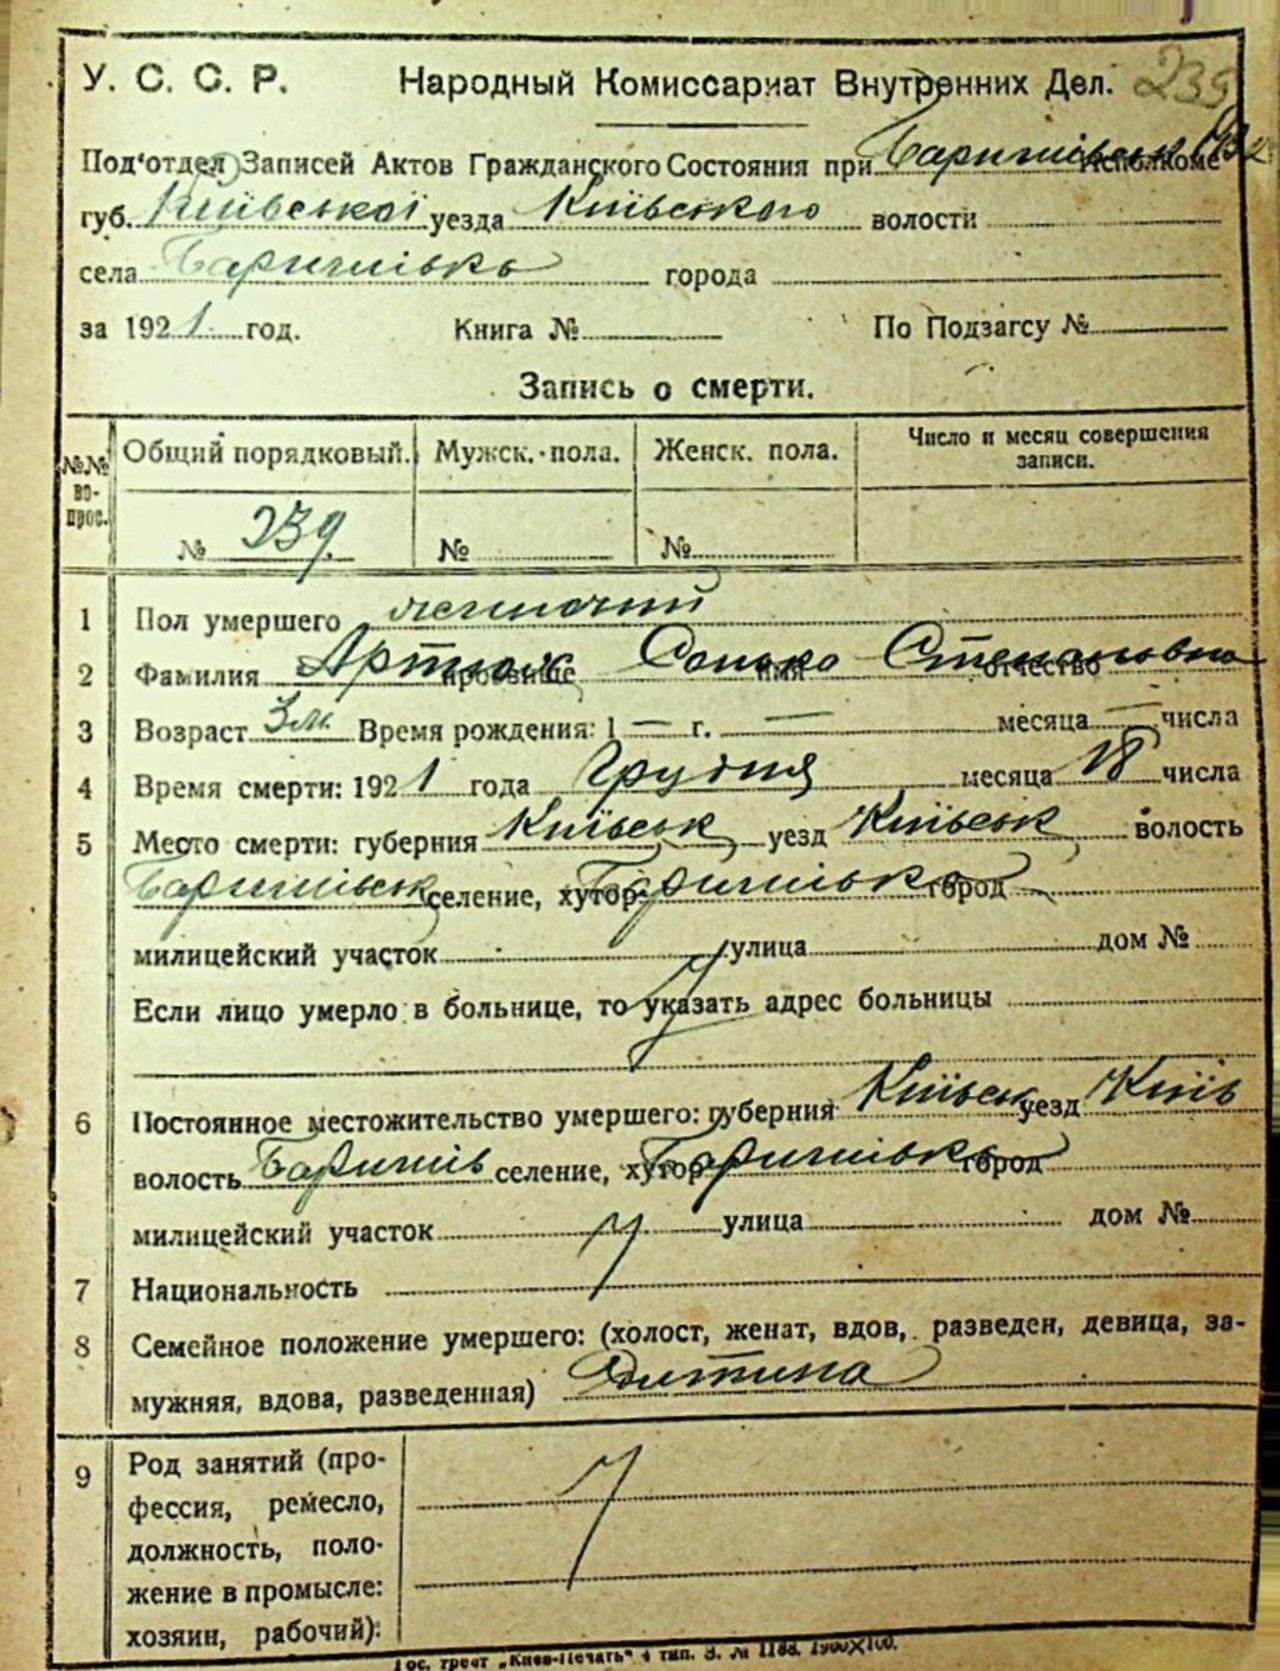 У. С. С. Р. Народный Комиссариат Внутренних Дел. 239
Под'отдел Записей Актов Гражданского Состояния при Баришівськ Исполкоме
губ. Київської уезда Київського волости
села Баришівка города
за 1921 год. Книга № По Подзагсу №
Запись о смерти.
№№ вопрос. Общий порядковый. Мужск. пола. Женск. пола. Число и месяц совершения записи.
№ 239 № №
1 Пол умершего жіночий
2 Фамилия Артюх прозвище Сонька имя Степановна отчество
3 Возраст 3 м. Время рождения: 1 — г. — месяца — числа
4 Время смерти: 1921 года Грудня месяца 18 числа
5 Место смерти: губерния Київськ уезд Київськ волость
Баришівськ селение, хутор Баришівка город
милицейский участок улица дом №
Если лицо умерло в больнице, то указать адрес больницы
6 Постоянное местожительство умершего: губерния Київськ уезд Київ
волость Баришів селение, хутор Баришівка город
милицейский участок улица дом №
7 Национальность
8 Семейное положение умершего: (холост, женат, вдов, разведен, девица, за-
мужняя, вдова, разведенная) Дитина
9 Род занятий (про-
фессия, ремесло,
должность, поло-
жение в промысле:
хозяин, рабочий):
Гос. трест „Киев-Печать" 4 тип. З. № 1188. 1900×100.